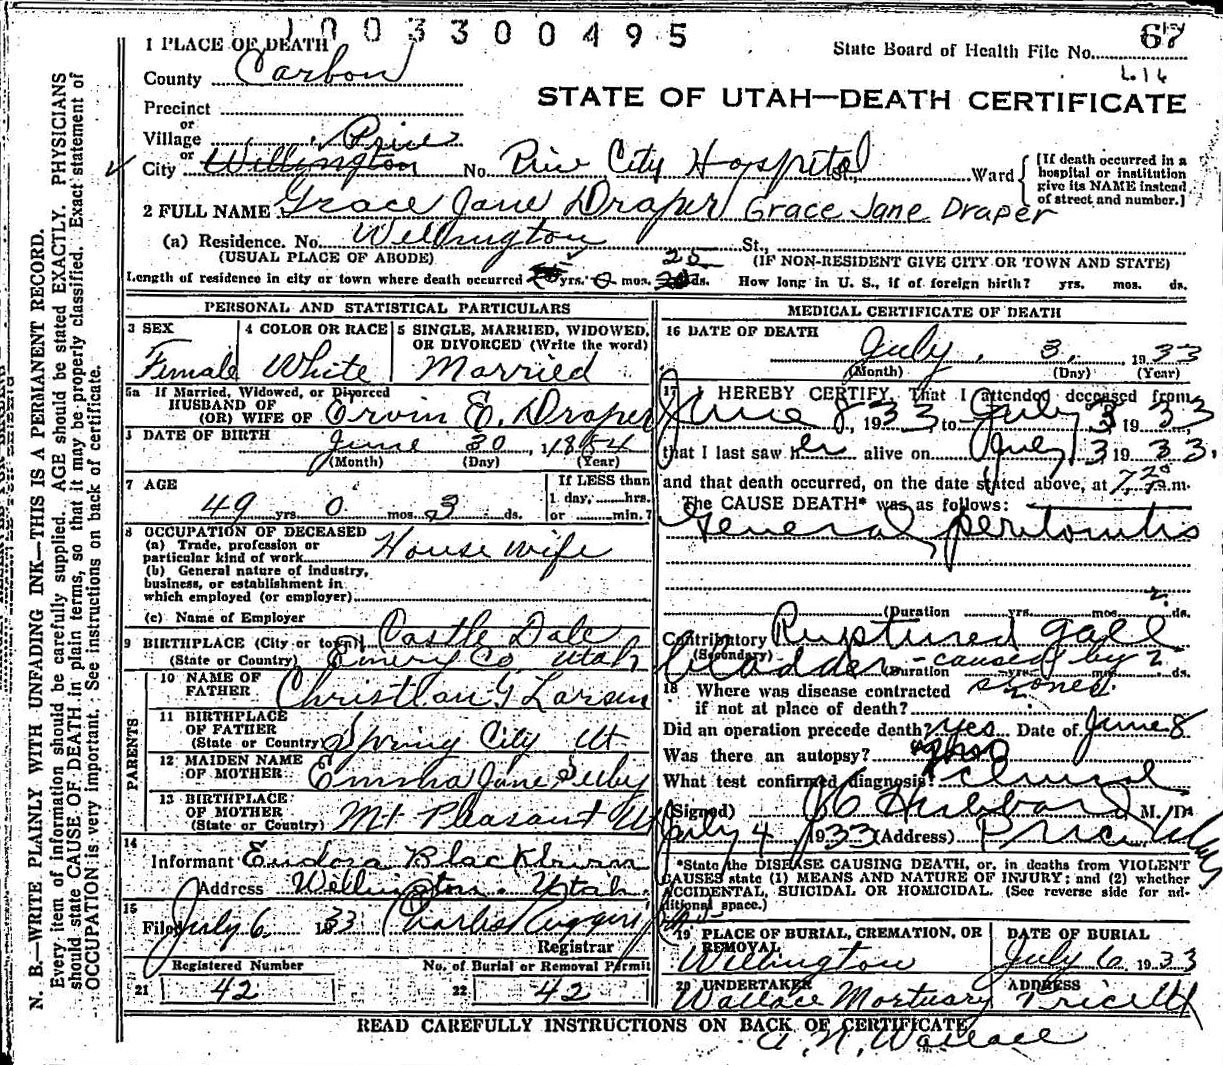 1003300495
1 PLACE OF DEATH
State Board of Health File No. 67
County Carbon
L16
STATE OF UTAH—DEATH CERTIFICATE
Precinct
or
Village Price
or
City Wellington No. Price City Hospital St., Ward
[If death occurred in a hospital or institution give its NAME instead of street and number.]
2 FULL NAME Grace Jane Draper Grace Jane Draper
(a) Residence. No. Wellington St.,
(USUAL PLACE OF ABODE) (IF NON-RESIDENT GIVE CITY OR TOWN AND STATE)
Length of residence in city or town where death occurred yrs. 0 mos. 25 ds. How long in U. S., if of foreign birth? yrs. mos. ds.
PERSONAL AND STATISTICAL PARTICULARS
3 SEX 4 COLOR OR RACE 5 SINGLE, MARRIED, WIDOWED, OR DIVORCED (Write the word)
Female White Married
5a If Married, Widowed, or Divorced
HUSBAND OF
(OR) WIFE OF Ervin E. Draper
DATE OF BIRTH June 30, 1884
(Month) (Day) (Year)
7 AGE If LESS than
1 day, hrs.
49 yrs. 0 mos. 3 ds. or min.?
8 OCCUPATION OF DECEASED
(a) Trade, profession or
particular kind of work House wife
(b) General nature of industry,
business, or establishment in
which employed (or employer)
(c) Name of Employer
9 BIRTHPLACE (City or town) Castle Dale
(State or Country) Emery Co, Utah
PARENTS
10 NAME OF
FATHER Christian G Larsen
11 BIRTHPLACE
OF FATHER
(State or Country) Spring City Ut
12 MAIDEN NAME
OF MOTHER Emma Jane Seeley
13 BIRTHPLACE
OF MOTHER
(State or Country) Mt Pleasant U
14
Informant Eudora Blackburn
Address Wellington, Utah.
15
Filed July 6, 1933
Registrar
Registered Number No. of Burial or Removal Permit
21 42 22 42
MEDICAL CERTIFICATE OF DEATH
16 DATE OF DEATH
July 3, 1933
(Month) (Day) (Year)
17 I HEREBY CERTIFY, That I attended deceased from
June 8, 1933, to July 3 1933,
that I last saw her alive on July 3 1933.
and that death occurred, on the date stated above, at m.
The CAUSE DEATH* was as follows:
General peritonitis
(Duration yrs. mos. 2 ds.
Contributory Ruptured gall
(Secondary)
bladder - caused by
(Duration yrs. mos. 2 ds.
stones.
18 Where was disease contracted
if not at place of death?
Did an operation precede death? yes Date of June 8
Was there an autopsy?
What test confirmed diagnosis? Clinical
(Signed) J C Hubbard M. D.
July 4 1933 (Address) Price Utah
*State the DISEASE CAUSING DEATH, or, in deaths from VIOLENT
CAUSES state (1) MEANS AND NATURE OF INJURY; and (2) whether
ACCIDENTAL, SUICIDAL OR HOMICIDAL. (See reverse side for additional space.)
19 PLACE OF BURIAL, CREMATION, OR REMOVAL DATE OF BURIAL
Wellington July 6 1933
20 UNDERTAKER ADDRESS
Wallace Mortuary Price Ut
READ CAREFULLY INSTRUCTIONS ON BACK OF CERTIFICATE
A. N. Wallace
N. B.—WRITE PLAINLY WITH UNFADING INK—THIS IS A PERMANENT RECORD.
Every item of information should be carefully supplied. AGE should be stated EXACTLY. PHYSICIANS
should state CAUSE OF DEATH in plain terms, so that it may be properly classified. Exact statement of
OCCUPATION is very important. See instructions on back of certificate.